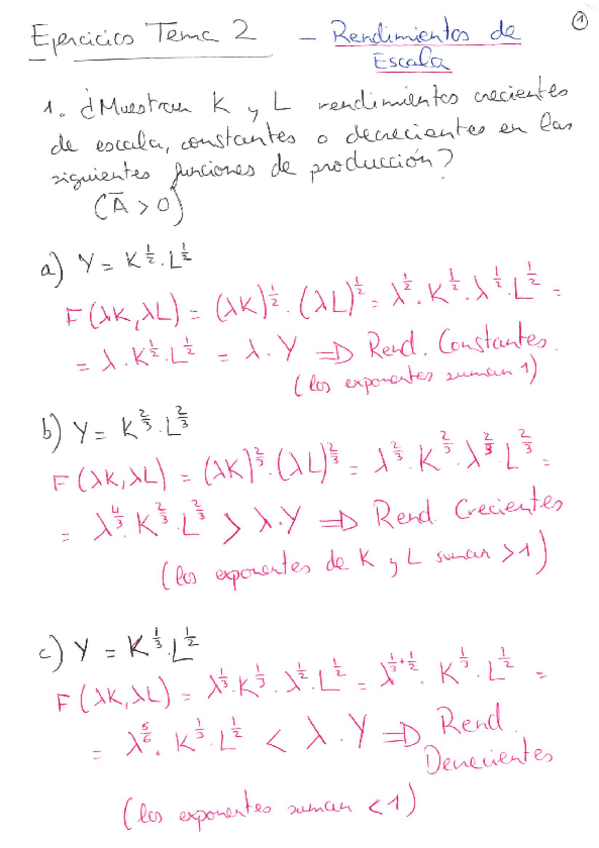 ①
Ejercicios Tema 2 - Rendimientos de
Escala
1. ¿Muestran K y L rendimientos crecientes
de escala, constantes o decrecientes en las
siguientes funciones de producción?
(Ā > 0)
a) Y = K^{1/2} · L^{1/2}
F(λK, λL) = (λK)^{1/2} · (λL)^{1/2} = λ^{1/2} · K^{1/2} · λ^{1/2} · L^{1/2} =
= λ · K^{1/2} · L^{1/2} = λ · Y ⇒ Rend. Constantes.
(los exponentes suman 1)
b) Y = K^{2/3} · L^{2/3}
F(λK, λL) = (λK)^{2/3} · (λL)^{2/3} = λ^{2/3} · K^{2/3} · λ^{2/3} · L^{2/3} =
= λ^{4/3} · K^{2/3} · L^{2/3} > λ · Y ⇒ Rend. Crecientes
(los exponentes de K y L suman > 1)
c) Y = K^{1/3} · L^{1/2}
F(λK, λL) = λ^{1/3} · K^{1/3} · λ^{1/2} · L^{1/2} = λ^{1/3+1/2} · K^{1/3} · L^{1/2} =
= λ^{5/6} · K^{1/3} · L^{1/2} < λ · Y ⇒ Rend.
Decrecientes
(los exponentes suman < 1)